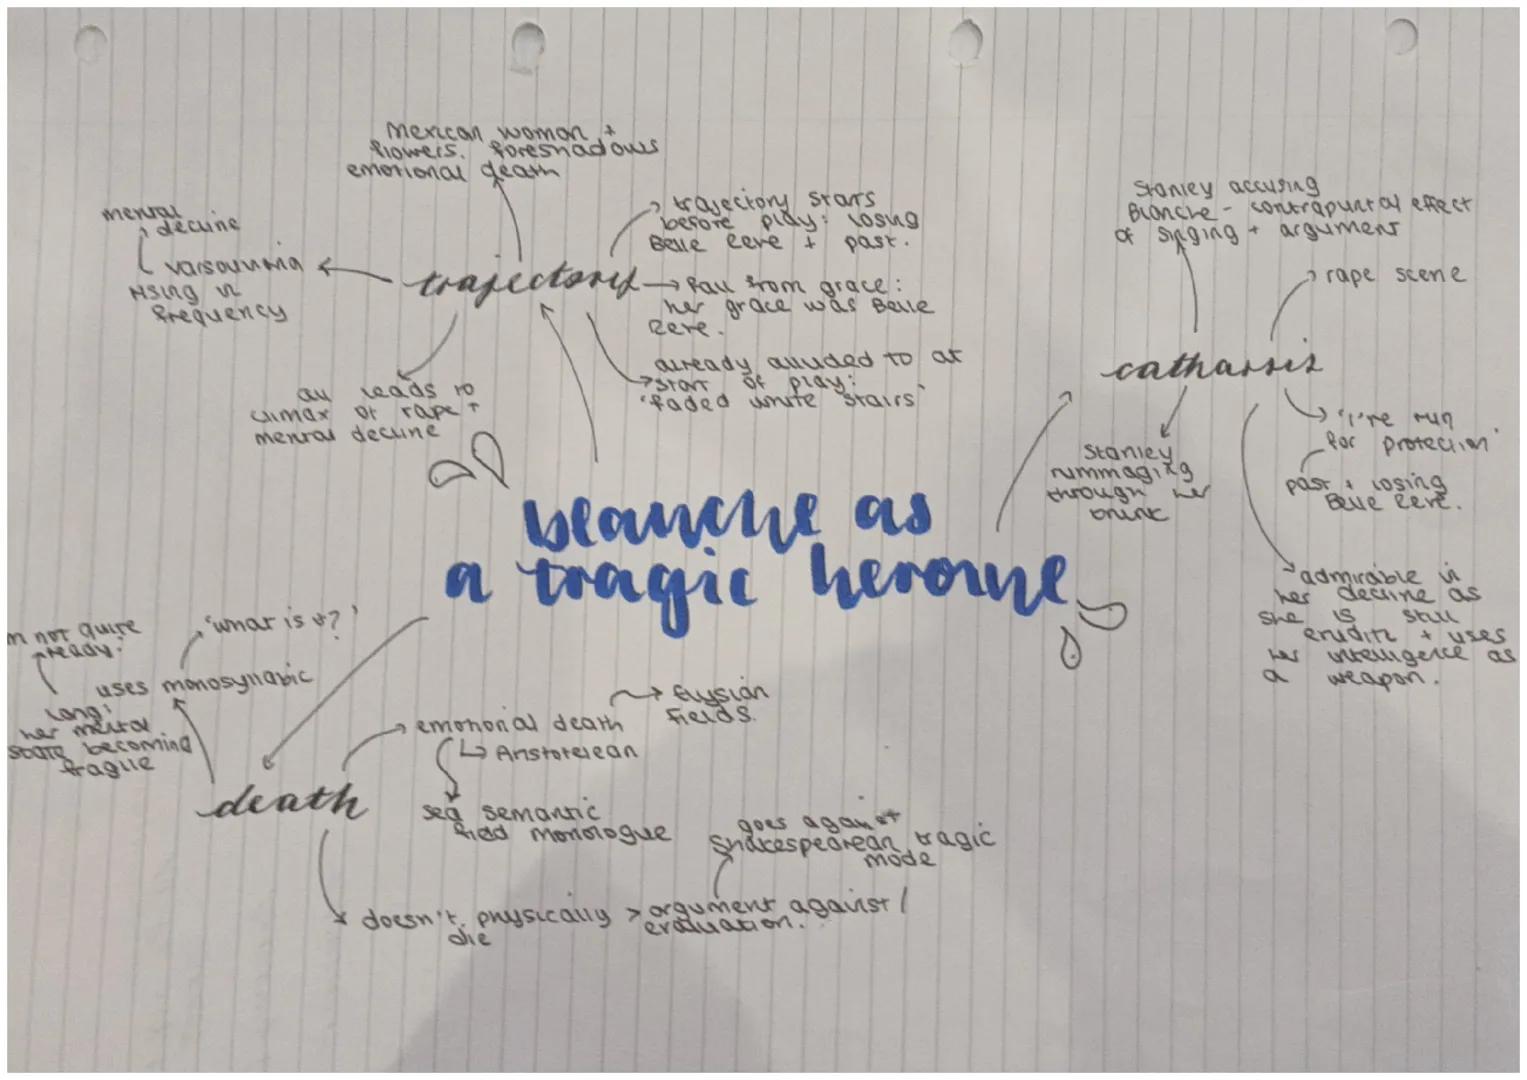 Mexican woman +
flowers. foreshadows
emotional death
mental
decline
varsouviana
rising in
frequency
trajectory starts
before play: losing
Belle Reve + past.
trajectory
Fall from grace:
her grace was Belle
Reve.
already alluded to at
start of play:
'faded white stairs'
all leads to
climax of rape +
mental decline
Stanley accusing
Blanche - contrapuntal effect
of singing + argument
rape scene
catharsis
Stanley
rummaging
through her
trunk
'I've run
for protection'
past + losing
Belle Reve.
admirable in
her decline as
she is still
erudite + uses
her intelligence as
a weapon.
blanche as
a tragic heroine
m not quite
ready.'
'what is it?'
uses monosyllabic
lang:
her mental
state becoming
fragile
death
emotional death
Elysian
Fields.
Aristotelean
sea semantic
field monologue
doesn't physically
die
> argument against /
evaluation.
goes against
Shakespearean tragic
mode